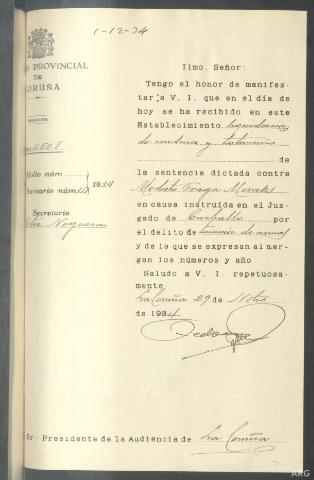 1-12-34
PROVINCIAL
DE
CORUÑA
Rollo núm
Sumario núm 1934
Secretario
Noguera
Ilmo. Señor:
Tengo el honor de manifes-
tar a V. I. que en el día de
hoy se ha recibido en este
Establecimiento liquidacion
de condena y testimonio
de
la sentencia dictada contra
Modesto Maralas
en causa instruída en el Juz-
gado de Carballo por
el delito de tenencia de armas
y de la que se expresan al mar-
gen los números y año
Saludo a V. I. repetuosa-
mente
La Coruña 29 de Nobre
de 1934.
Pedro
Sr. Presidente de la Audiencia de La Coruña
ARG